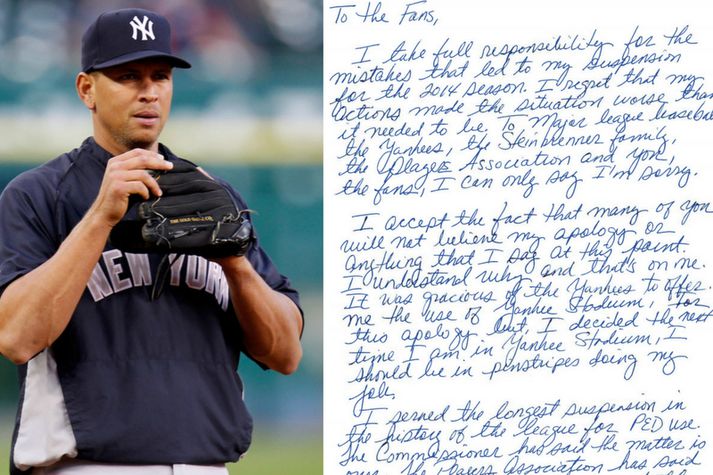 NY
NEW YORK
To the Fans,
I take full responsibility for the
mistakes that led to my suspension
for the 2014 season. I regret that my
actions made the situation worse than
it needed to be. To Major league baseba
the Yankees, the Steinbrenner family,
the Players Association and you,
the fans, I can only say I'm sorry.
I accept the fact that many of you
will not believe my apology or
anything that I say at this point.
I understand why and that's on me.
It was gracious of the Yankees to offer
me the use of Yankee Stadium, for
this apology but, I decided the next
time I am in Yankee Stadium, I
should be in pinstripes doing my
job.
I served the longest suspension in
the history of the league for PED use.
The Commissioner has said the matter is
the Players Association has said